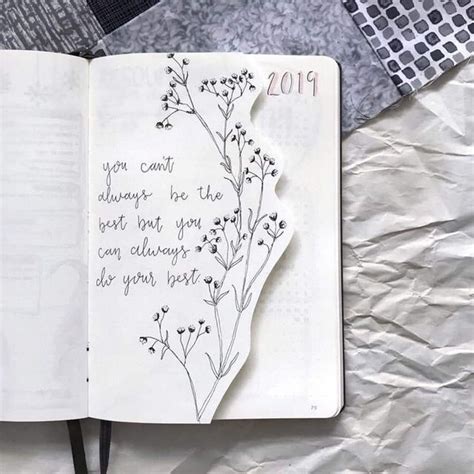 2019
you can't
always be the
best but you
can always
do your best